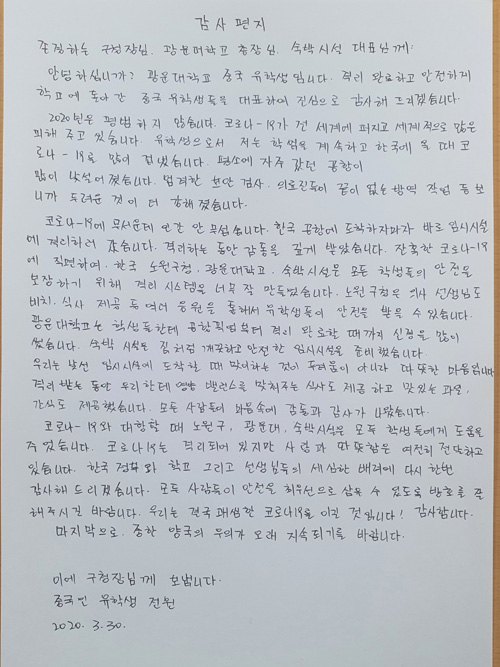 감사 편지
존경하는 구청장님, 광운대학교 총장님, 숙박시설 대표님께:
안녕하십니까? 광운대학교 중국 유학생입니다. 격리 완료하고 안전하게
학교에 돌아간 중국 유학생들을 대표하여 진심으로 감사해 드리겠습니다.
2020년은 평범하지 않습니다. 코로나-19가 전 세계에 퍼지고 세계적으로 많은
피해 주고 있습니다. 유학생으로서 저는 학업을 계속하고 한국에 올 때 코
로나-19로 많이 겁났습니다. 평소에 자주 갔던 공항이
많이 낯설어졌습니다. 엄격한 보안 검사, 의료진들이 끊이 없는 방역 작업 등 보
니까 두려운 것이 더 강해졌습니다.
코로나-19에 무서운데 인간 안 무섭습니다. 한국 공항에 도착하자마자 바로 임시시설
에 격리하러 갔습니다. 격리하는 동안 감동을 깊게 받았습니다. 잔혹한 코로나-19
에 직면하여, 한국 노원구청, 광운대학교, 숙박시설은 모든 학생들의 안전을
보장하기 위해 격리 시스템을 너무 잘 만들었습니다. 노원구청은 의사 선생님도
배치, 식사 제공 등 여러 응원을 통해서 유학생들이 안전을 받을 수 있습니다.
광운대학교는 학생들한테 공항픽업부터 격리 완료할 때까지 신경을 많이
썼습니다. 숙박 시설은 집처럼 깨끗하고 안전한 임시시설을 준비했습니다.
우리는 낯선 임시시설에 도착할 때 맞이하는 것이 두려움이 아니라 따뜻한 마음입니다.
격리 받는 동안 우리한테 영양 밸런스를 맞춰주는 식사도 제공하고 맛있는 과일,
간식도 제공했습니다. 모든 사람들이 마음속에 감동과 감사가 나왔습니다.
코로나-19와 대항할 때 노원구, 광운대, 숙박시설은 모두 학생들에게 도움을
주었습니다. 코로나19는 격리되어 있지만 사랑과 따뜻함은 여전히 전달하고
있습니다. 한국 정부와 학교 그리고 선생님들의 세심한 배려에 다시 한번
감사해 드리겠습니다. 모든 사람들이 안전을 최우선으로 삼을 수 있도록 방호를 잘
해주시길 바랍니다. 우리는 결국 꼭 코로나19를 이길 것입니다! 감사합니다.
마지막으로, 중한 양국의 우의가 오래 지속되기를 바랍니다.
이에 구청장님께 보냅니다.
중국인 유학생 전원
2020. 3. 30.